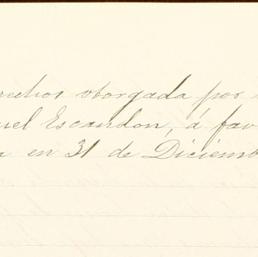 rechos otorgada por
uel Escandon, á fav
a en 31 de Diciemb